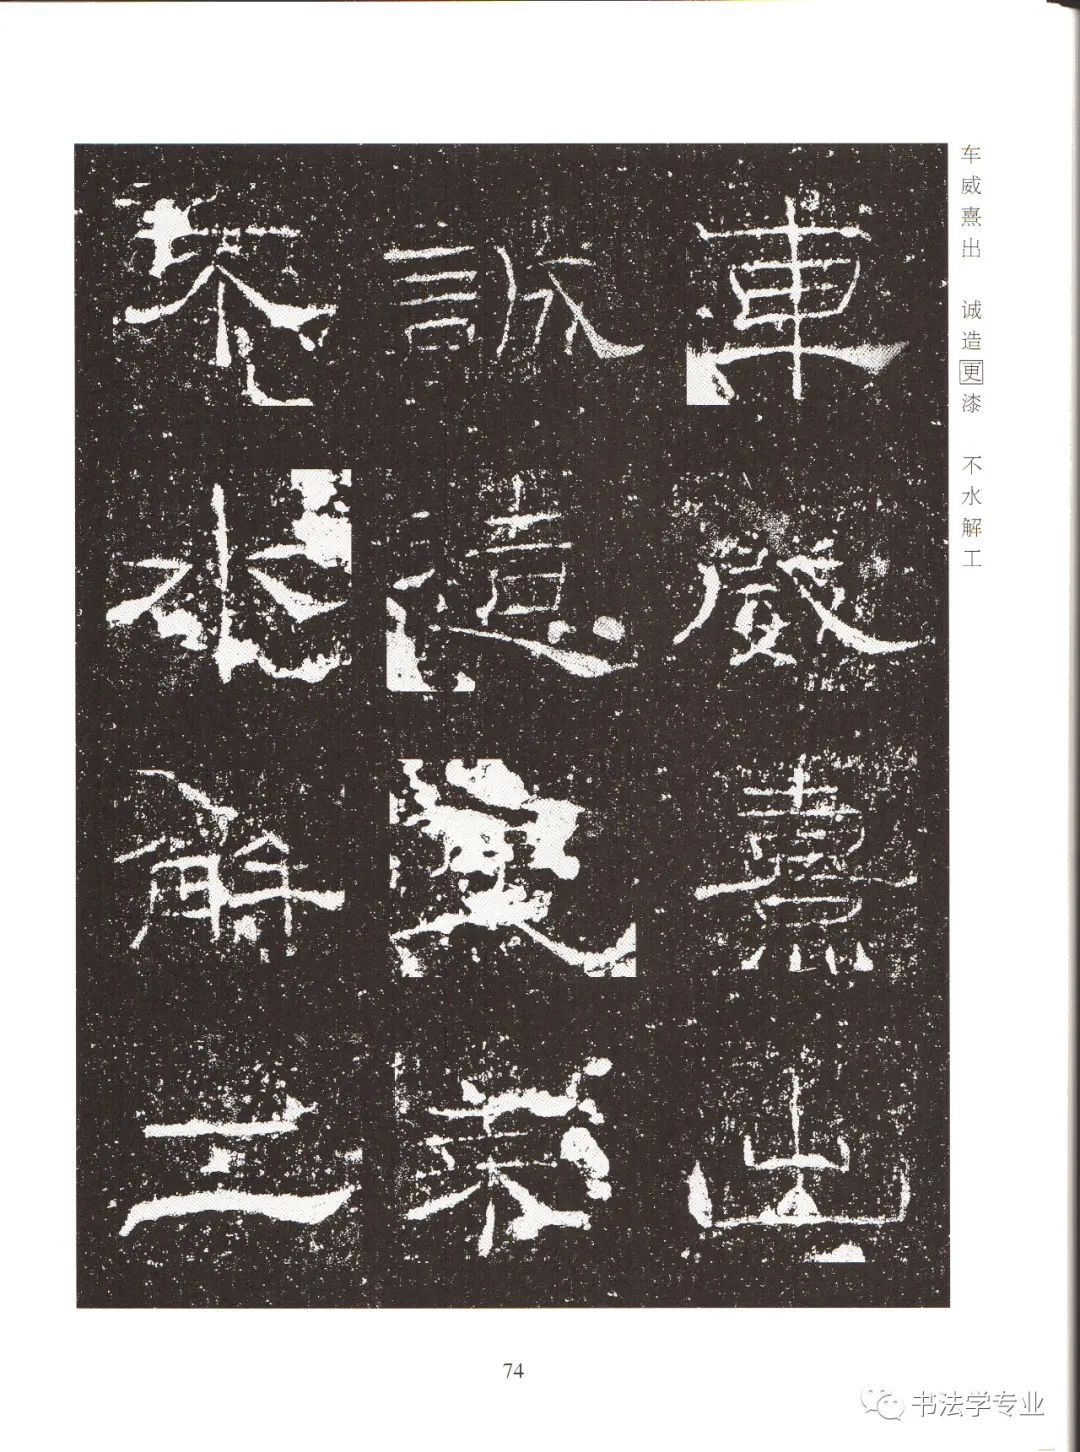 车威熹出 诚造更漆 不水解工
車威熹出
造更
水解工
74
书法学专业